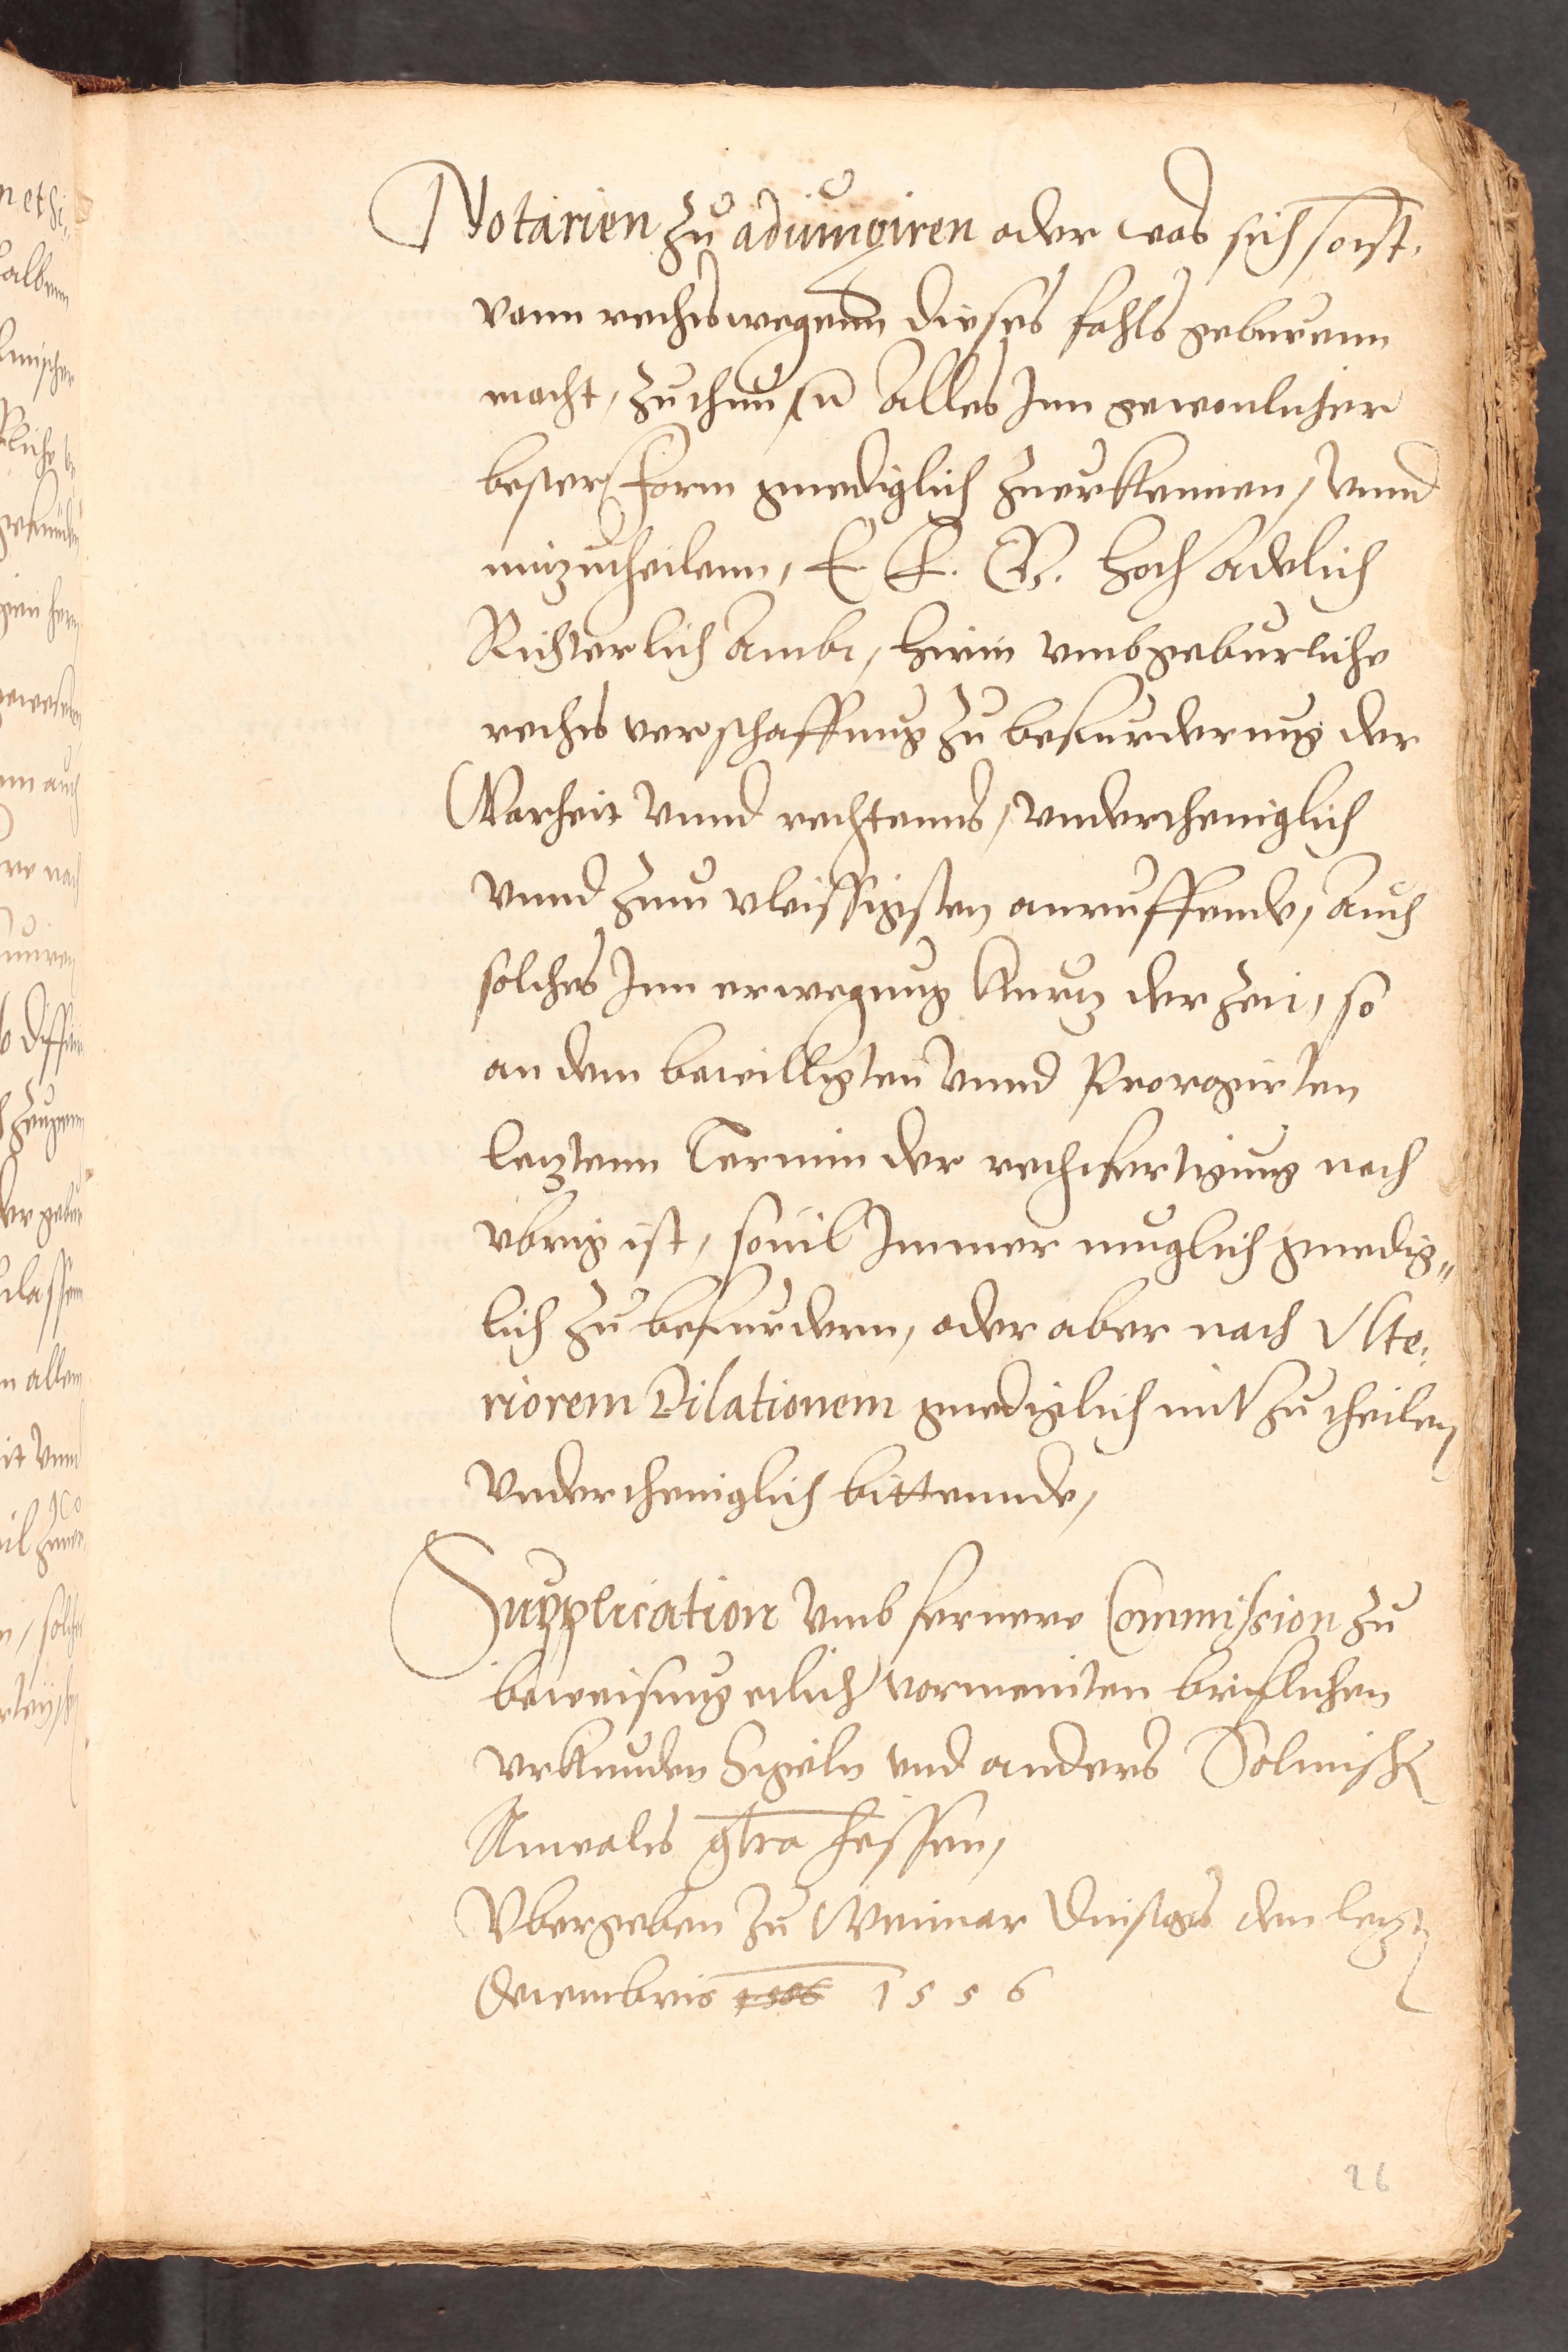 Notarien zu adiungiren oder was sich sonst
vonn rechtswegenn dieses fahls geburenn
macht, zuthun, in Alles Inn gewonlicher
bester form gnediglich zuerkennen, vnnd
mitzutheilenn, E. F. G. hoch Adelich
Richterlich Ambt, hirin vmb geburliche
rechts verschaffung zu befurderung der
Warheit vnnd rechtenns, vnderthenig lich
vnnd zum vleissigsten anruffende, Auch
solches Inn erwegung kurtz der Zeit, so
an dem bewilligten vnnd Prorogirten
letztenn Termin der rechtfertigung noch
vbrig ist, souil Immer muglich gnedig„
lich zu befurdern, oder aber noch Vlte:
riorem Dilationem gnediglich mit zu theilen
vnderthenig lich bittennde,
Supplication vmb fernere Commission zu
beweisung etlich vormeinten brieflichen
vrkunden Sigeln vnd anders Solmisch
Anwalts gtra Hessen,
Vbergeben zu Weimar Dinstgs den letzt
Decembris 1556
26